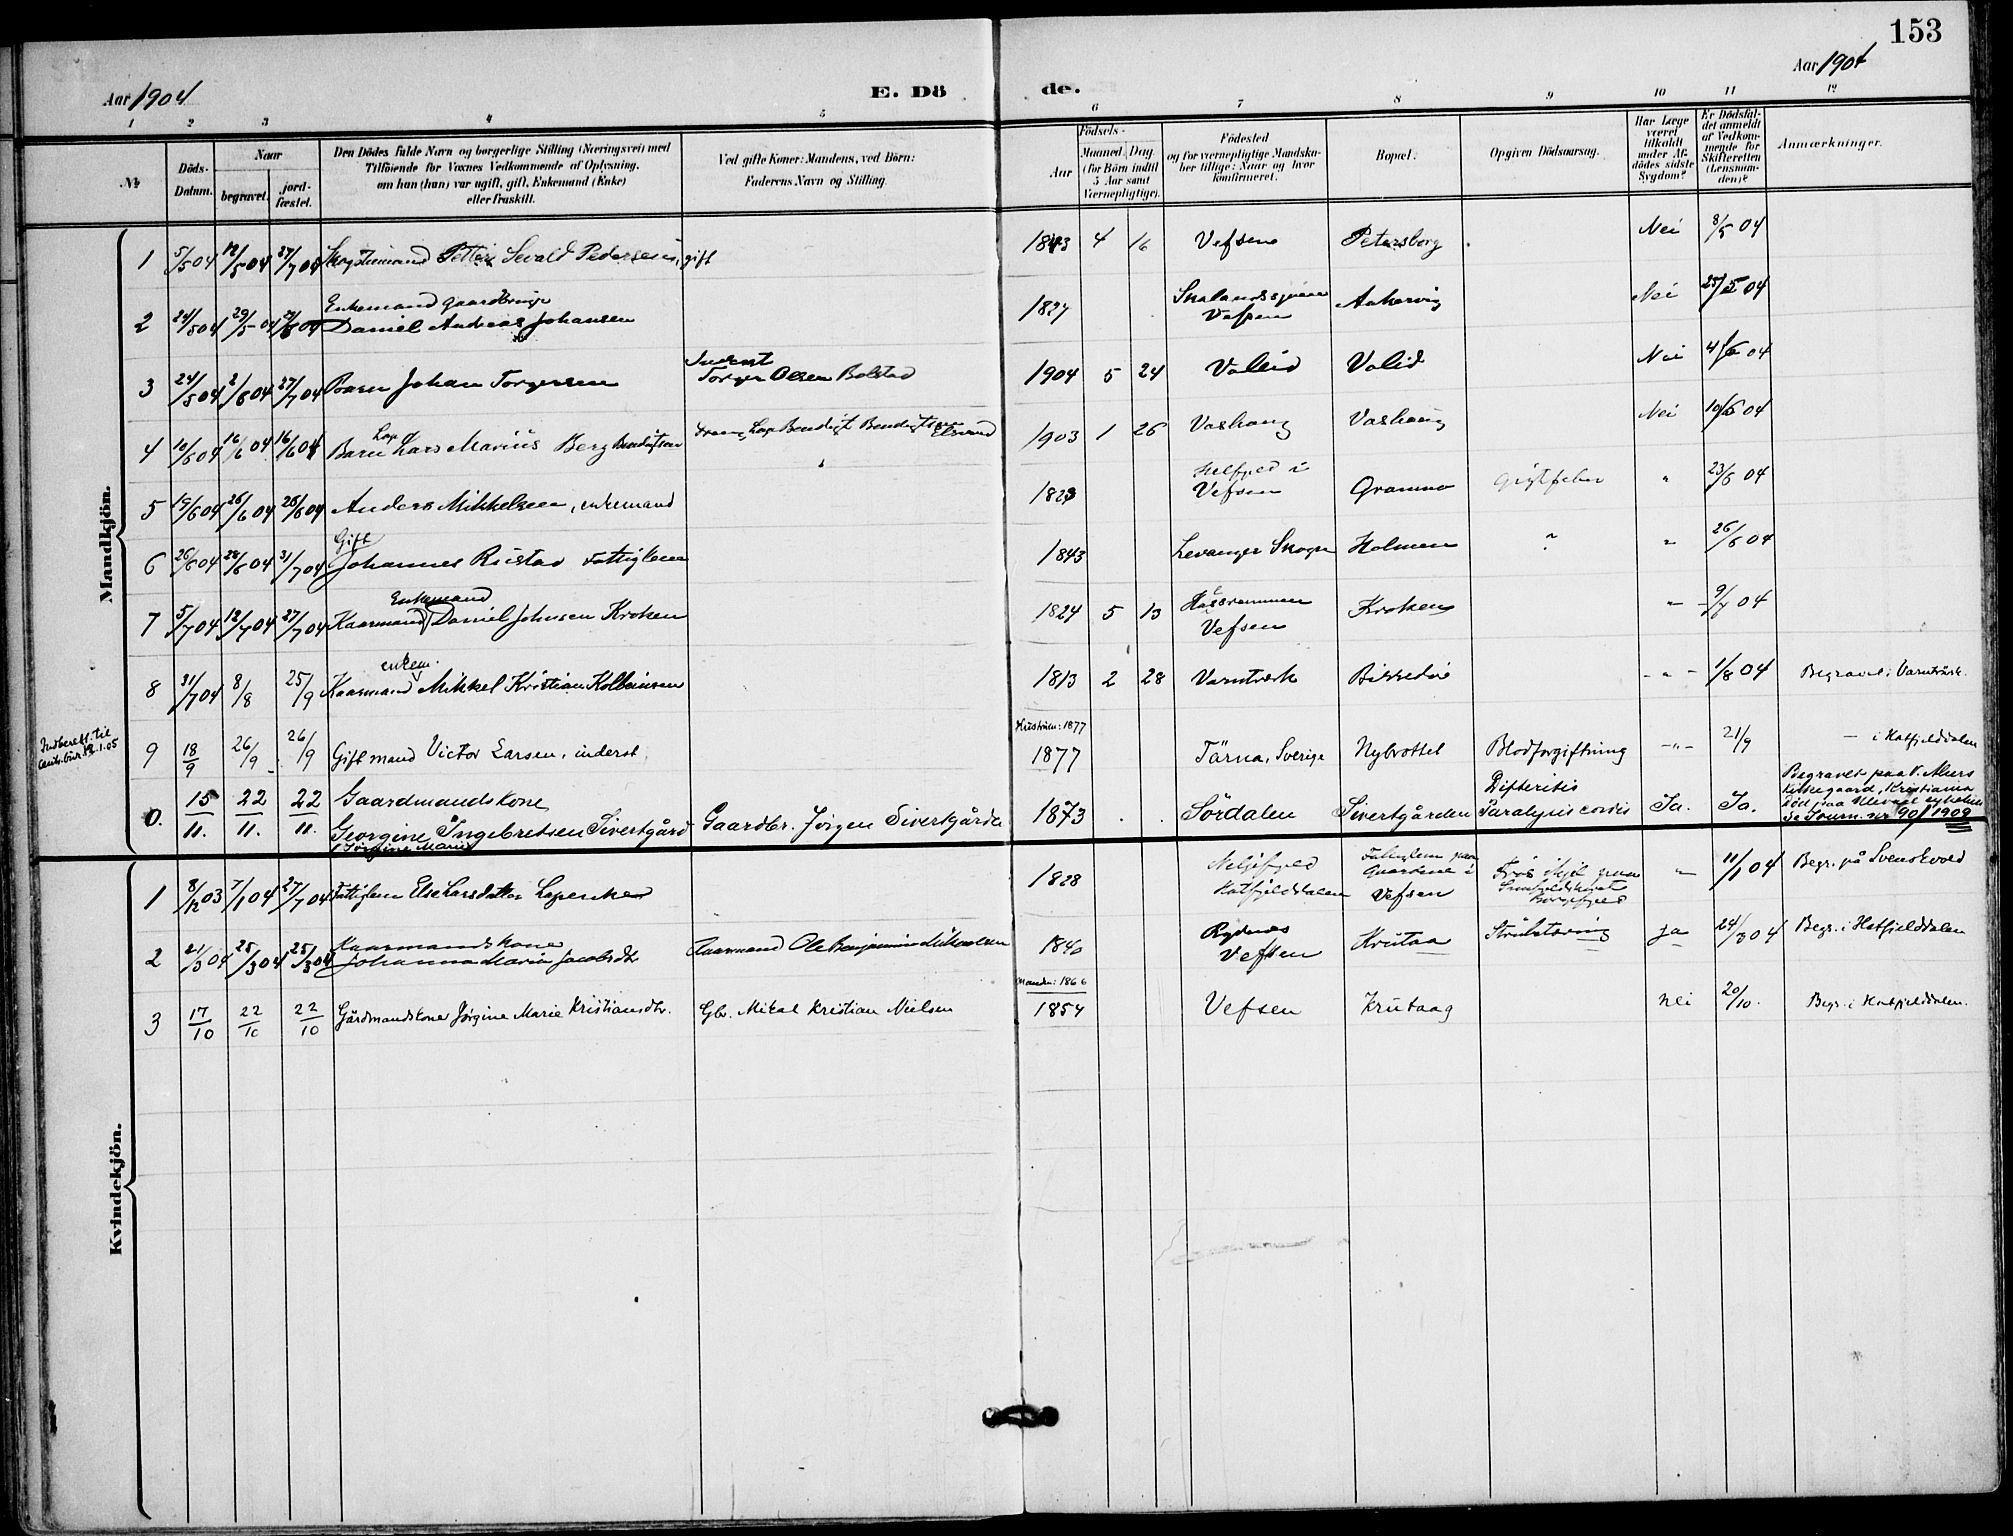 153
Aar 1904
E. Döde.
Aar 1904
1 2 3 4 5 6 7 8 9 10 11 12
№
Döds-Datum.
Naar
begravet.
jord-fæstet.
Den Dödes fulde Navn og borgerlige Stilling (Næringsvei) med
Tilföiende for Voxnes Vedkommende af Oplysning,
om han (hun) var ugift, gift, Enkemand (Enke)
eller fraskilt.
Ved gifte Koner: Mandens, ved Börn:
Faderens Navn og Stilling.
Födsels-
Aar
Maaned. Dag.
(for Börn indtil
5 Aar samt
Værnepligtige).
Födested
og for værnepligtige Mandska-
ber tillige: Naar og hvor
konfirmeret.
Bopæl.
Opgiven Dödsaarsag.
Har Læge
været
tilkaldt
under Af-
dödes sidste
Sygdom?
Er Dödsfal-
det anmeldt
af Vedkom-
mende for
Skifteretten
(Lensman-
den)?
Anmærkninger.
Mandkjön.
1 5/5 04 12/5 04 27/7 04 Petter Sevald Pedersen, gift 1843 4 16 Vefsen Petersborg Nei 8/5 04
2 24/5 04 29/5 04 Enkemand gaardbruger
Daniel Andreas Johansen 1827 Vefsen Aakervig Nei 25/5 04
3 24/5 04 2/6 04 27/7 04 Barn Johan Torgersen Inderst
Torger Olsen Bolstad 1904 5 24 Valid Valid Nei 4/6 04
4 10/6 04 16/6 04 16/6 04 Barn Lap Lars Marius Berg Bendigtsen Lap Bendigt Bendigtsen 1903 1 26 Vashaug Vashaug Nei 10/6 04
5 19/6 04 26/6 04 26/6 04 Anders Mikkelsen, enkemand Vefsen Grannes Gigtfeber " 23/6 04
6 26/6 04 28/6 04 31/7 04 Gift
Johannes Ristad Fattiglem 1843 Levanger Skogn Holmen ? " 26/6 04
7 5/7 04 12/7 04 27/7 04 Kaarmand Enkemand Daniel Johnsen Kroken 1824 5 13 Vefsen Kroken " 9/7 04
8 31/7 04 8/8 25/9 Kaarmand enkem. Mikkel Kristian Kolbeinsen 1813 2 28 Varntræsk - " - 1/8 04 Begravet i Varntræsk.
Indberett. til
9 18/9 26/9 26/9 Gift mand Victor Larsen, inderst Hustruen: 1877
1877 Tärna, Sverige Nybrottet Blodforgiftning - " - 21/9 — i Hatfjelddalen
0. 15/11. 22/11. 22/11. Gaardmandskone
Georgine Ingebretsen Sivertgård
(Jørgine Marie) Gaardbr. Jörgen Sivertgården 1873 . . Sördalen Sivertgården Difteritis
Paralysis cordis Ja. Ja. Begravet paa V. Akers
Kirkegaard, Kristiania
Kvindekjön.
1 8/12 03 7/1 04 27/7 04 Fattiglem Else Larsdatter Lapenke 1828
Hatfjelddalen Vefsen " 11/1 04 Begr. på Svenskvold
2 21/3 04 25/3 04 25/3 04 Kaarmandskone
Johanna Maria Jacobsdtr Kaarmand Ole Benjamin Mikaelsen 1840 Rynes
Vefsen Krutaa Strubetæring ja 24/3 04 Begr. i Hatfjelddalen
3 17/10 22/10 22/10 Gårdmandskone Jørgine Marie Kristiansdtr. Gbr. Mikal Kristian Nielsen Manden: 1866
1854 Vefsen Krutaag nei 20/10. Begr. i Hatfjelddalen.